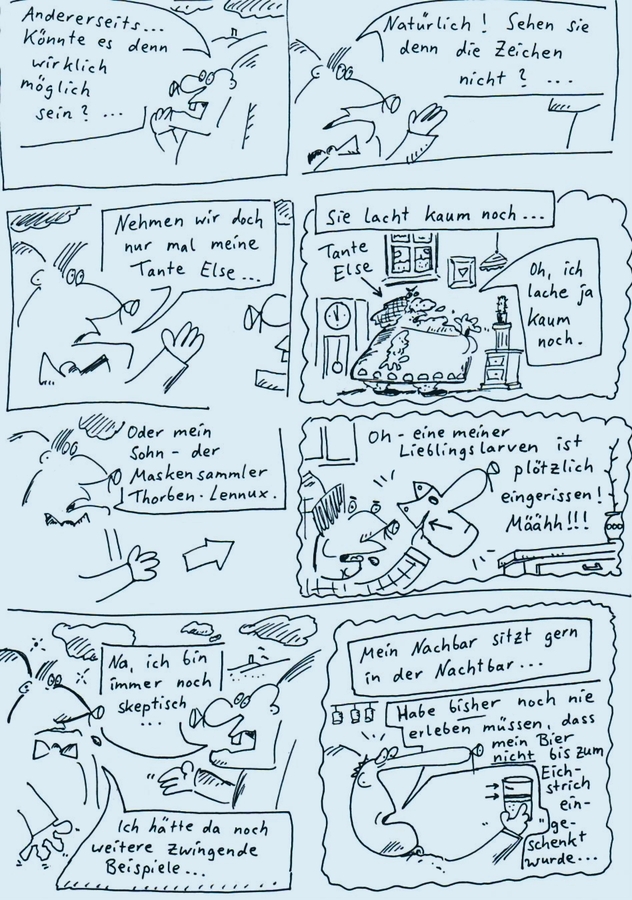 Andererseits...
Könnte es denn
wirklich
möglich
sein? ...
Natürlich! Sehen sie
denn die Zeichen
nicht? ...
Nehmen wir doch
nur mal meine
Tante Else...
Sie lacht kaum noch...
Tante
Else
Oh, ich
lache ja
kaum
noch.
Oder mein
Sohn - der
Maskensammler
Thorben-Lennux.
Oh - eine meiner
Lieblingslarven ist
plötzlich
eingerissen!
Määhh!!!
Na, ich bin
immer noch
skeptisch
...
Ich hätte da noch
weitere zwingende
Beispiele...
Mein Nachbar sitzt gern
in der Nachtbar...
Habe bisher noch nie
erleben müssen, dass
mein Bier
nicht bis zum
Eich-
strich
ein-
ge-
schenkt
wurde...